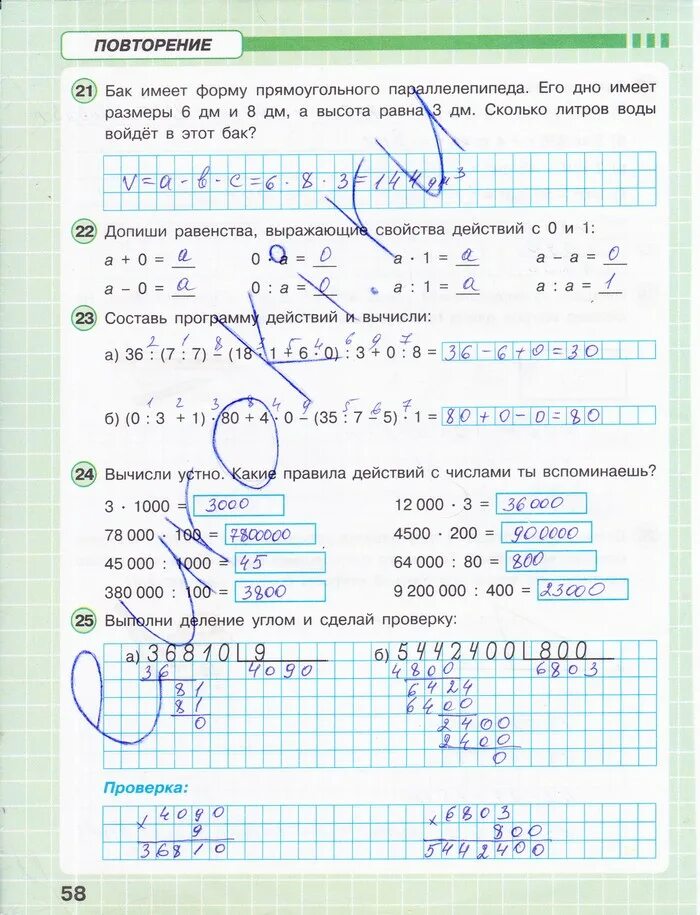 ПОВТОРЕНИЕ
21 Бак имеет форму прямоугольного параллелепипеда. Его дно имеет
размеры 6 дм и 8 дм, а высота равна 3 дм. Сколько литров воды
войдёт в этот бак?
V = a - в - с = 6 · 8 · 3 = 144 дм³
22 Допиши равенства, выражающие свойства действий с 0 и 1:
a + 0 = a 0 · a = 0 a · 1 = a a – a = 0
a – 0 = a 0 : a = 0 a : 1 = a a : a = 1
23 Составь программу действий и вычисли:
2 1 8 3 5 4 6 9 7
а) 36 : (7 : 7) – (18 · 1 + 6 · 0) : 3 + 0 : 8 = 36 - 6 + 0 = 30
1 2 3 8 4 9 5 6 7
б) (0 : 3 + 1) · 80 + 4 · 0 – (35 : 7 – 5) · 1 = 80 + 0 - 0 = 80
24 Вычисли устно. Какие правила действий с числами ты вспоминаешь?
3 · 1000 = 3000 12 000 · 3 = 36000
78 000 · 100 = 7800000 4500 · 200 = 900000
45 000 : 1000 = 45 64 000 : 80 = 800
380 000 : 100 = 3800 9 200 000 : 400 = 23000
25 Выполни деление углом и сделай проверку:
а) 36810 9 б) 5442400 800
36 4090 4800 6803
81 6424
81 6400
0 2400
2400
0
Проверка:
4090 6803
× 9 × 800
36810 5442400
58